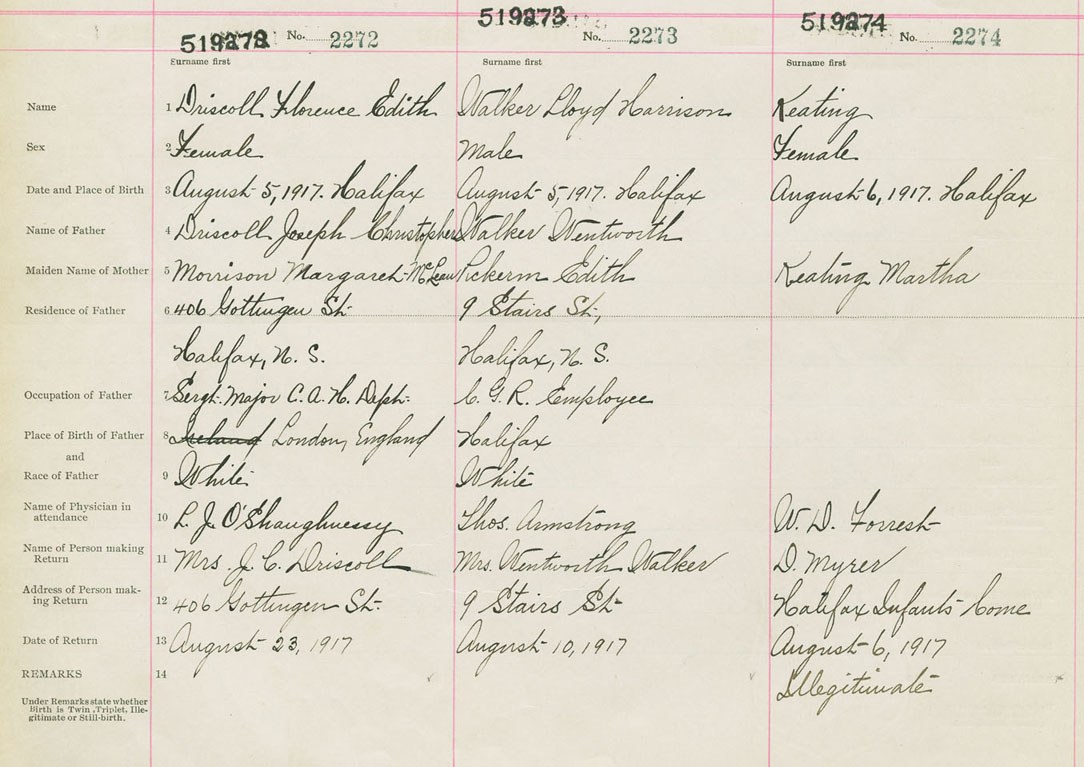 519272 519273 519274
No. 2272 No. 2273 No. 2274
Surname first Surname first Surname first
Name 1 Driscoll Florence Edith Walker Lloyd Harrison Keating
Sex 2 Female Male Female
Date and Place of Birth 3 August 5, 1917. Halifax August 5, 1917. Halifax August 6, 1917. Halifax
Name of Father 4 Driscoll Joseph Christopher Walker Wentworth
Maiden Name of Mother 5 Morrison Margaret McLean Edith Keating Martha
Residence of Father 6 406 Gottingen St. 9 Stairs St.,
Halifax, N. S. Halifax, N. S.
Occupation of Father 7 Sergt. Major C. A. H. Dept. C. G. R. Employee
Place of Birth of Father 8 Ireland London, England Halifax
and
Race of Father 9 White White
Name of Physician in
attendance 10 L. J. O'Shaughnessy Thos. Armstrong W. D. Forrest
Name of Person making
Return 11 Mrs. J. C. Driscoll Mrs. Wentworth Walker D. Myrer
Address of Person mak-
ing Return 12 406 Gottingen St. 9 Stairs St. Halifax Infants Home
Date of Return 13 August 23, 1917 August 10, 1917 August 6, 1917
REMARKS 14 Illegitimate
Under Remarks state whether
Birth is Twin, Triplet, Ille-
gitimate or Still-birth.